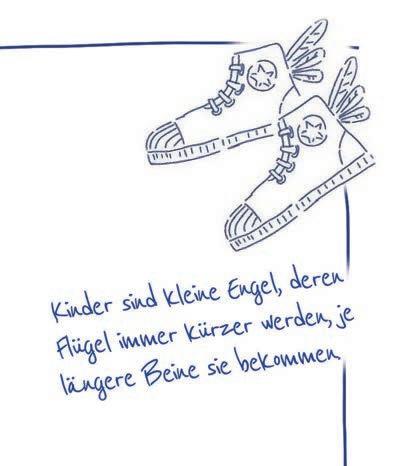 Kinder sind kleine Engel, deren
Flügel immer kürzer werden, je
längere Beine sie bekommen.